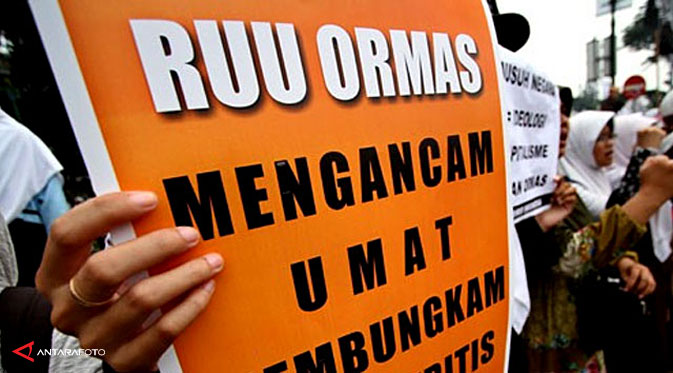 RUU ORMAS
MENGANCAM
UMAT
EMBUNGKAM
ITIS
USUH NEGARA
IDEOLOGI
PITALISME
AN ORMAS
ANTARAFOTO